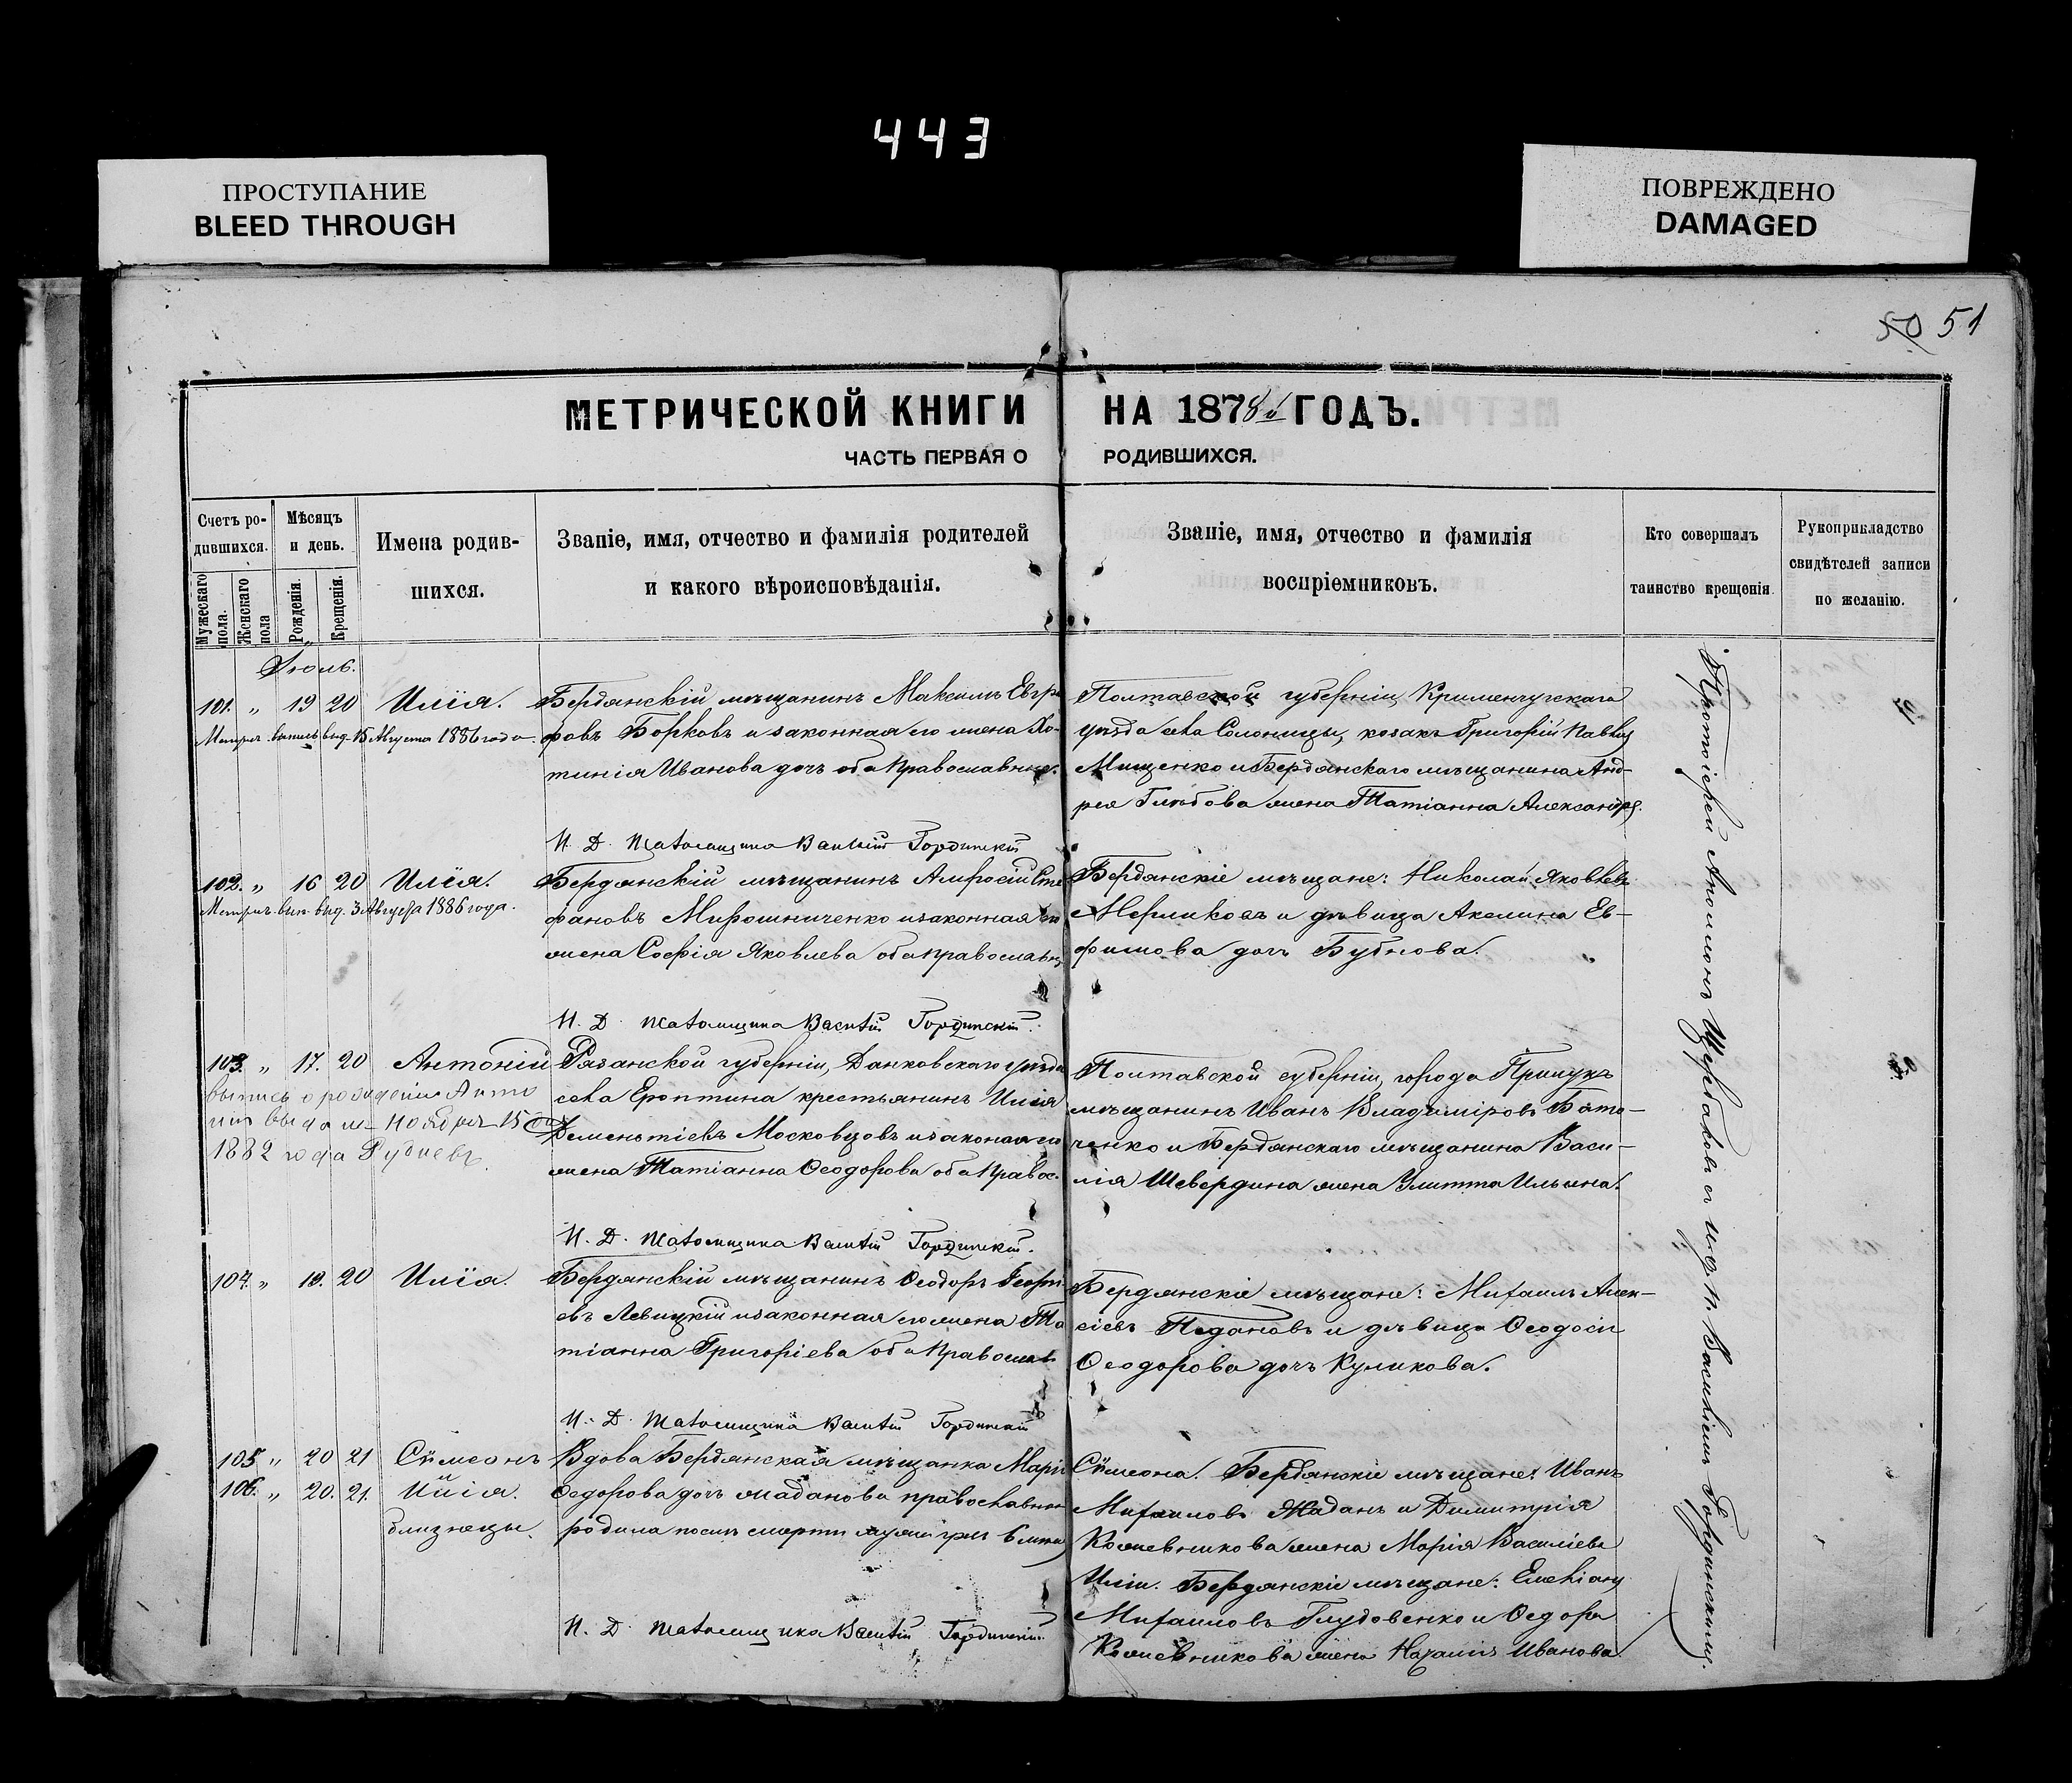 443
ПРОСТУПАНИЕ
BLEED THROUGH
ПОВРЕЖДЕНО
DAMAGED
50 51
МЕТРИЧЕСКОЙ КНИГИ НА 1878й ГОДЪ.
ЧАСТЬ ПЕРВАЯ О РОДИВШИХСЯ.
Счетъ родившихся.
Мужескаго пола.
Женскаго пола
Мѣсяцъ и день.
Рожденія.
Крещенія.
Имена родившихся.
Званіе, имя, отчество и фамилія родителей
и какого вѣроисповѣданія.
Званіе, имя, отчество и фамилія
воспріемниковъ.
Кто совершалъ
таинство крещенія.
Рукоприкладство
свидѣтелей записи
по желанію.
Іюль.
101. „ 19 20 Илія.
Метрич. выпись выд. 15 Августа 1886 года.
Бердянскій мѣщанинъ Максимъ Евгра
фовъ Борковъ и законная его жена Хо-
тинія Иванова дочь оба Православные.
Полтавской губерніи, Кременчугскаго
уѣзда села Солоницы, козакъ Григорій
Мищенко и Бердянскаго мѣщанина Анд-
рея Глѣбова жена Татіанна Александр.
И. Д. Псаломщика Василій Гординскій
102. „ 16 20 Илія.
Метрич. вып. выд. 3 Августа 1886 года.
Бердянскій мѣщанинъ Амвросій Сте
фановъ Мирошниченко и законная его
жена Софія Яковлева оба православн.
Бердянскіе мѣщане: Николай Яковлевъ
и дѣвица Акелина Ев-
фимова дочь Бубнова.
И. Д. Псаломщика Василій Гординскій.
103. „ 17. 20 Антоній
выпись о рожденіи Анто
нія выдана Ноября 15 дня
1882 года Рубневъ
Рязанской губерніи, Данковскаго уѣзда
села Еропкина крестьянинъ Илія
Клементіевъ Московцовъ и законная его
жена Татіанна Ѳеодорова оба Правос.
Полтавской губерніи, города Прилукъ
мѣщанинъ Иванъ Владиміровъ Бато-
ченко и Бердянскаго мѣщанина Васи-
лія Шевердина жена Улитта Ильина.
И. Д. Псаломщика Василій Гординскій.
104. „ 19. 20 Илія.
Бердянскій мѣщанинъ Ѳеодоръ Георгі
евъ Левицкій и законная его жена Та
тіанна Григоріева оба Православ
Бердянскіе мѣщане: Михаилъ Алек-
сіевъ Педановъ и дѣвица Ѳеодосія
Ѳеодорова дочь Куликова.
И. Д. Псаломщика Василій Гординскій
105 „ 20 21 Сѵмеонъ
106. „ 20. 21. Илія.
близнецы.
Вдова Бердянская мѣщанка Марія
Ѳедорова дочь Жаданова православная
родила послѣ смерти мужа
Сѵмеона. Бердянскіе мѣщане: Иванъ
Михаиловъ Жаданъ и Димитрія
Кожевникова жена Марія Василіева
Иліи. Бердянскіе мѣщане: Емеліанъ
Михаиловъ Глудовенко и Ѳедора
Кожевникова жена Наталія Иванова.
И. Д. Псаломщика Василій Гординскій.
Протоіерей Аполлонъ Щербаковъ съ и. д. п. Василіемъ Гординскимъ.